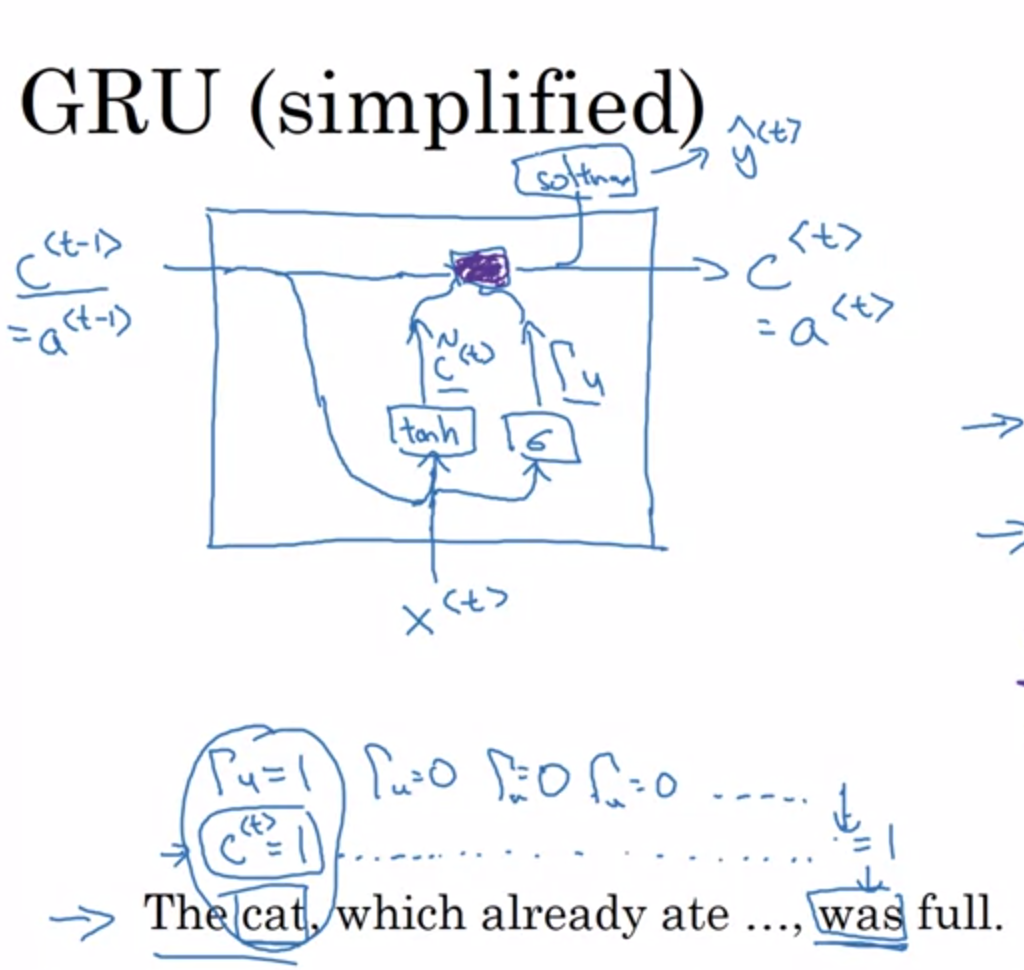 GRU (simplified)
softmax ŷ<t>
c<t-1> c<t>
=a<t-1> =a<t>
c̃<t> Γu
tanh σ
x<t>
Γu=1 Γu=0 Γu=0 Γu=0 ......
c<t>=1 ............ =1
The cat, which already ate ..., was full.